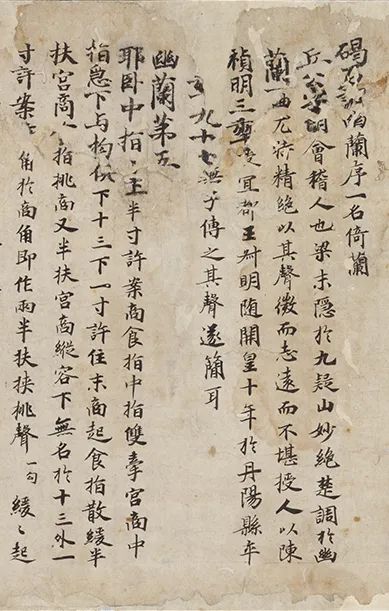 碣石調幽蘭序一名倚蘭
丘公字明會稽人也梁末隱於九疑山妙絕楚調於幽
蘭一曲尤特精絕以其聲微而志遠而不堪授人以陳
禎明三年授宜都王叔明隨開皇十年於丹陽縣卒
年九十七無子傳之其聲遂簡耳
幽蘭第五
耶臥中指〻半寸許案商食指中指雙牽宮商中
指急下与构俱下十三下一寸許住末商起食指散緩半
扶宮商食指挑商又半扶宮商縱容下無名於十三外一
寸許案商角於商角即作兩半扶挾挑聲一句緩〻起